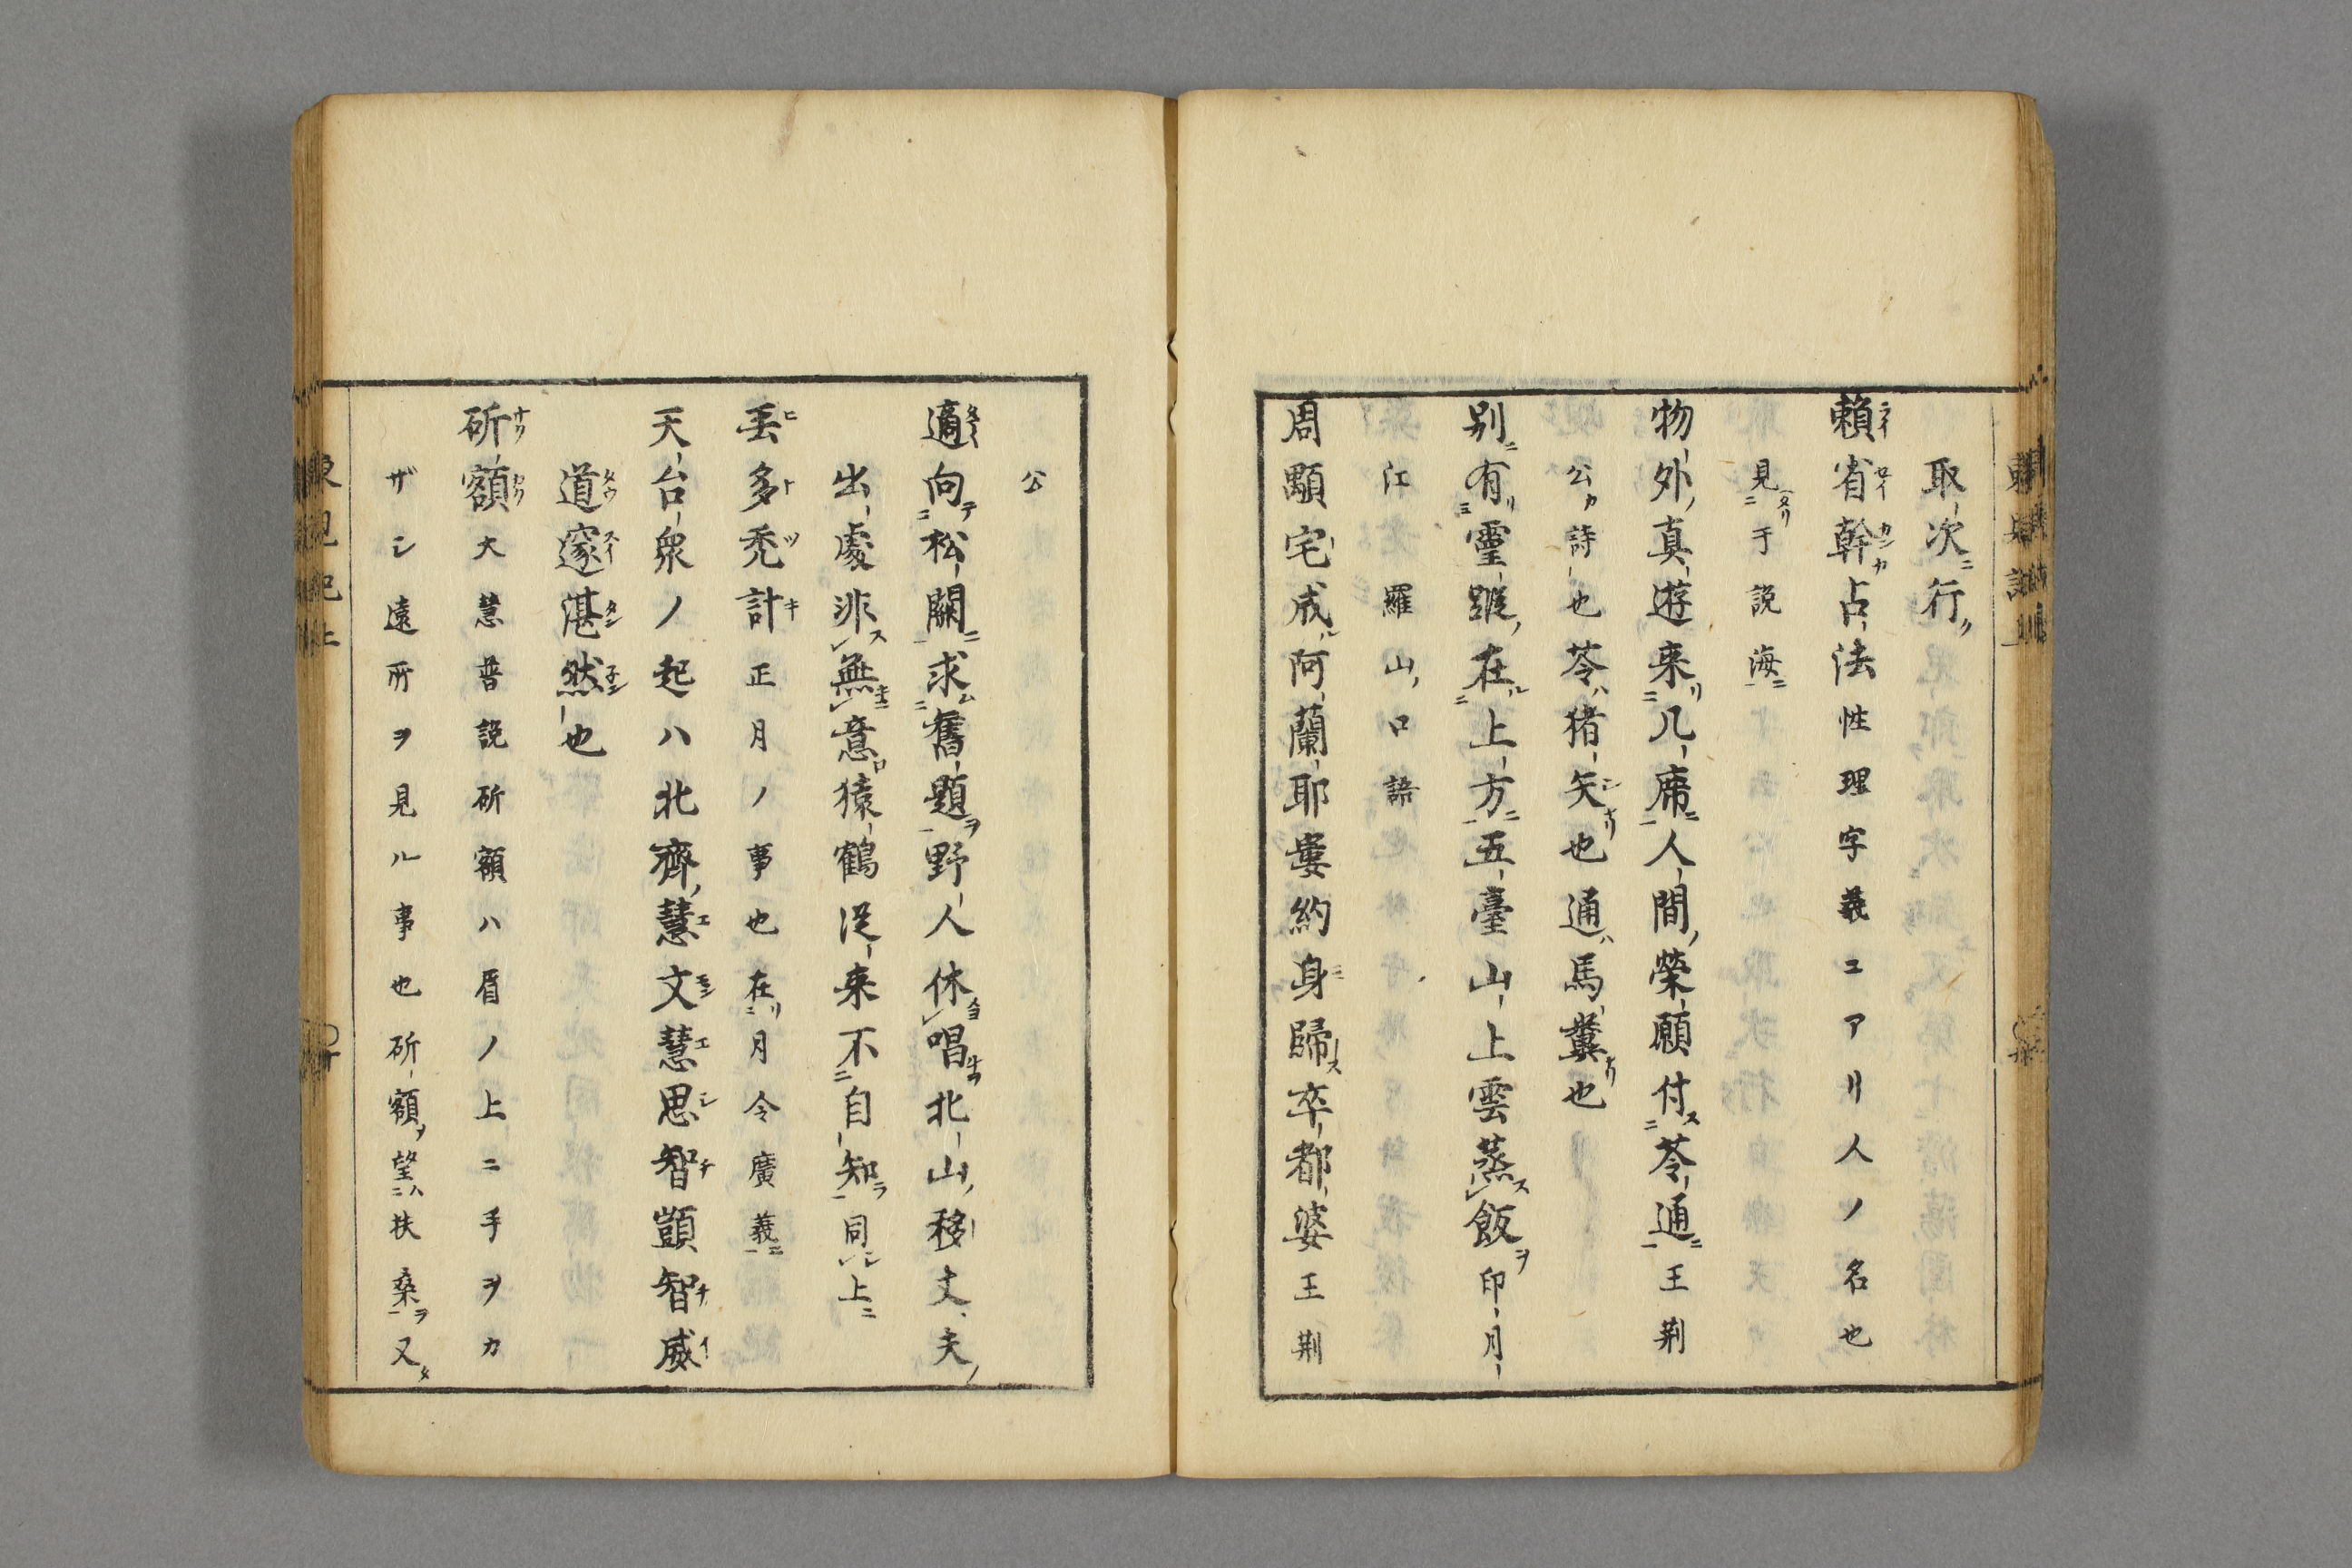 取次ニ行
頼省幹占法性理字義ニアリ人ノ名也
見于説海
物外真遊来几席人間榮願付苓通王荆
公カ詩也苓ハ猪矢也通ハ馬糞也
別有靈蹤在上方五臺山上雲蒸飯印月
江羅山口語
周顒宅成阿蘭耶婁約身歸卒都婆王荆
公
適向松關求舊題野人休唱北山移丈夫
出處非無意猿鶴従来不自知同上
丟多禿計正月ノ事也在月令廣義
天台衆ノ起ハ北齊慧文慧思智顗智威
道邃湛然也
斫額大慧普説斫額ハ眉ノ上ニ手ヲカ
ザシ遠所ヲ見ル事也斫額望扶桑又